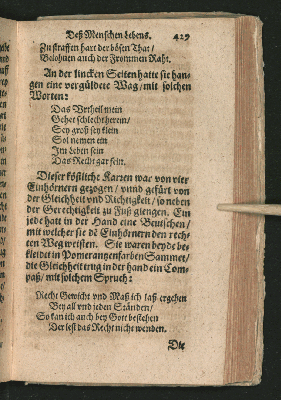 Deß Menschen Lebens. 429
Zu straffen hart der bösen That/
Belohnen auch der Frommen Raht.
An der lincken Seiten hatte sie han-
gen eine vergüldete Wag/ mit solchen
Worten:
Das Vrtheil mein
Gehet schlecht herein/
Sey groß sey klein
Sol nemen ein
Im Leben sein
Das Recht gar fein.
Dieser köstliche Karren war von vier
Einhörnern gezogen/ vnnd geführt von
der Gleichheit vnd Richtigkeit/ so neben
der Gerechtigkeit zu Fuß giengen. Ein
jede hatt in der Hand eine Beutschen/
mit welcher sie dē Einhörnern den rech-
ten Weg weisten. Sie waren beyde be-
kleidet in Pomerantzenfarben Sammet/
die Gleichheit trug in der hand ein Com-
paß/ mit solchem Spruch:
Recht Gewicht vnd Maß ich laß ergehen
Bey all vnd jeden Ständen/
So kan ich auch bey Gott bestehen
Der lest das Recht nicht wenden.
Die